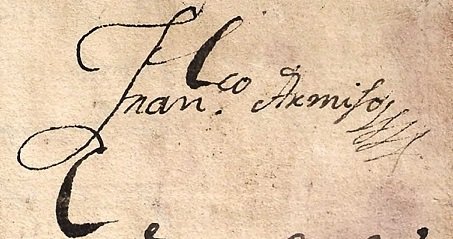 Fran.co Armiso